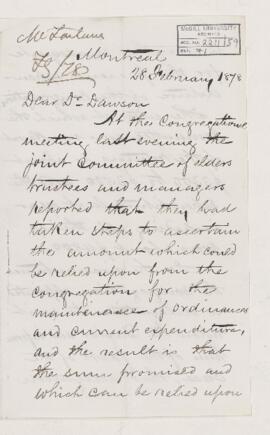 McFarlane
McGILL UNIVERSITY
ARCHIVES
ACC. NO. 2211/59
REF. 1
F3/78
Montreal
28 February 1878
Dear Dr Dawson
At the Congregational
meeting last evening the
joint Committee of elders
trustees and managers
reported that they had
taken steps to ascertain
the amount which could
be relied upon from the
congregation for the
maintenance of ordinances
and current expenditure,
and the result is that
the sum promised and
which can be relied upon